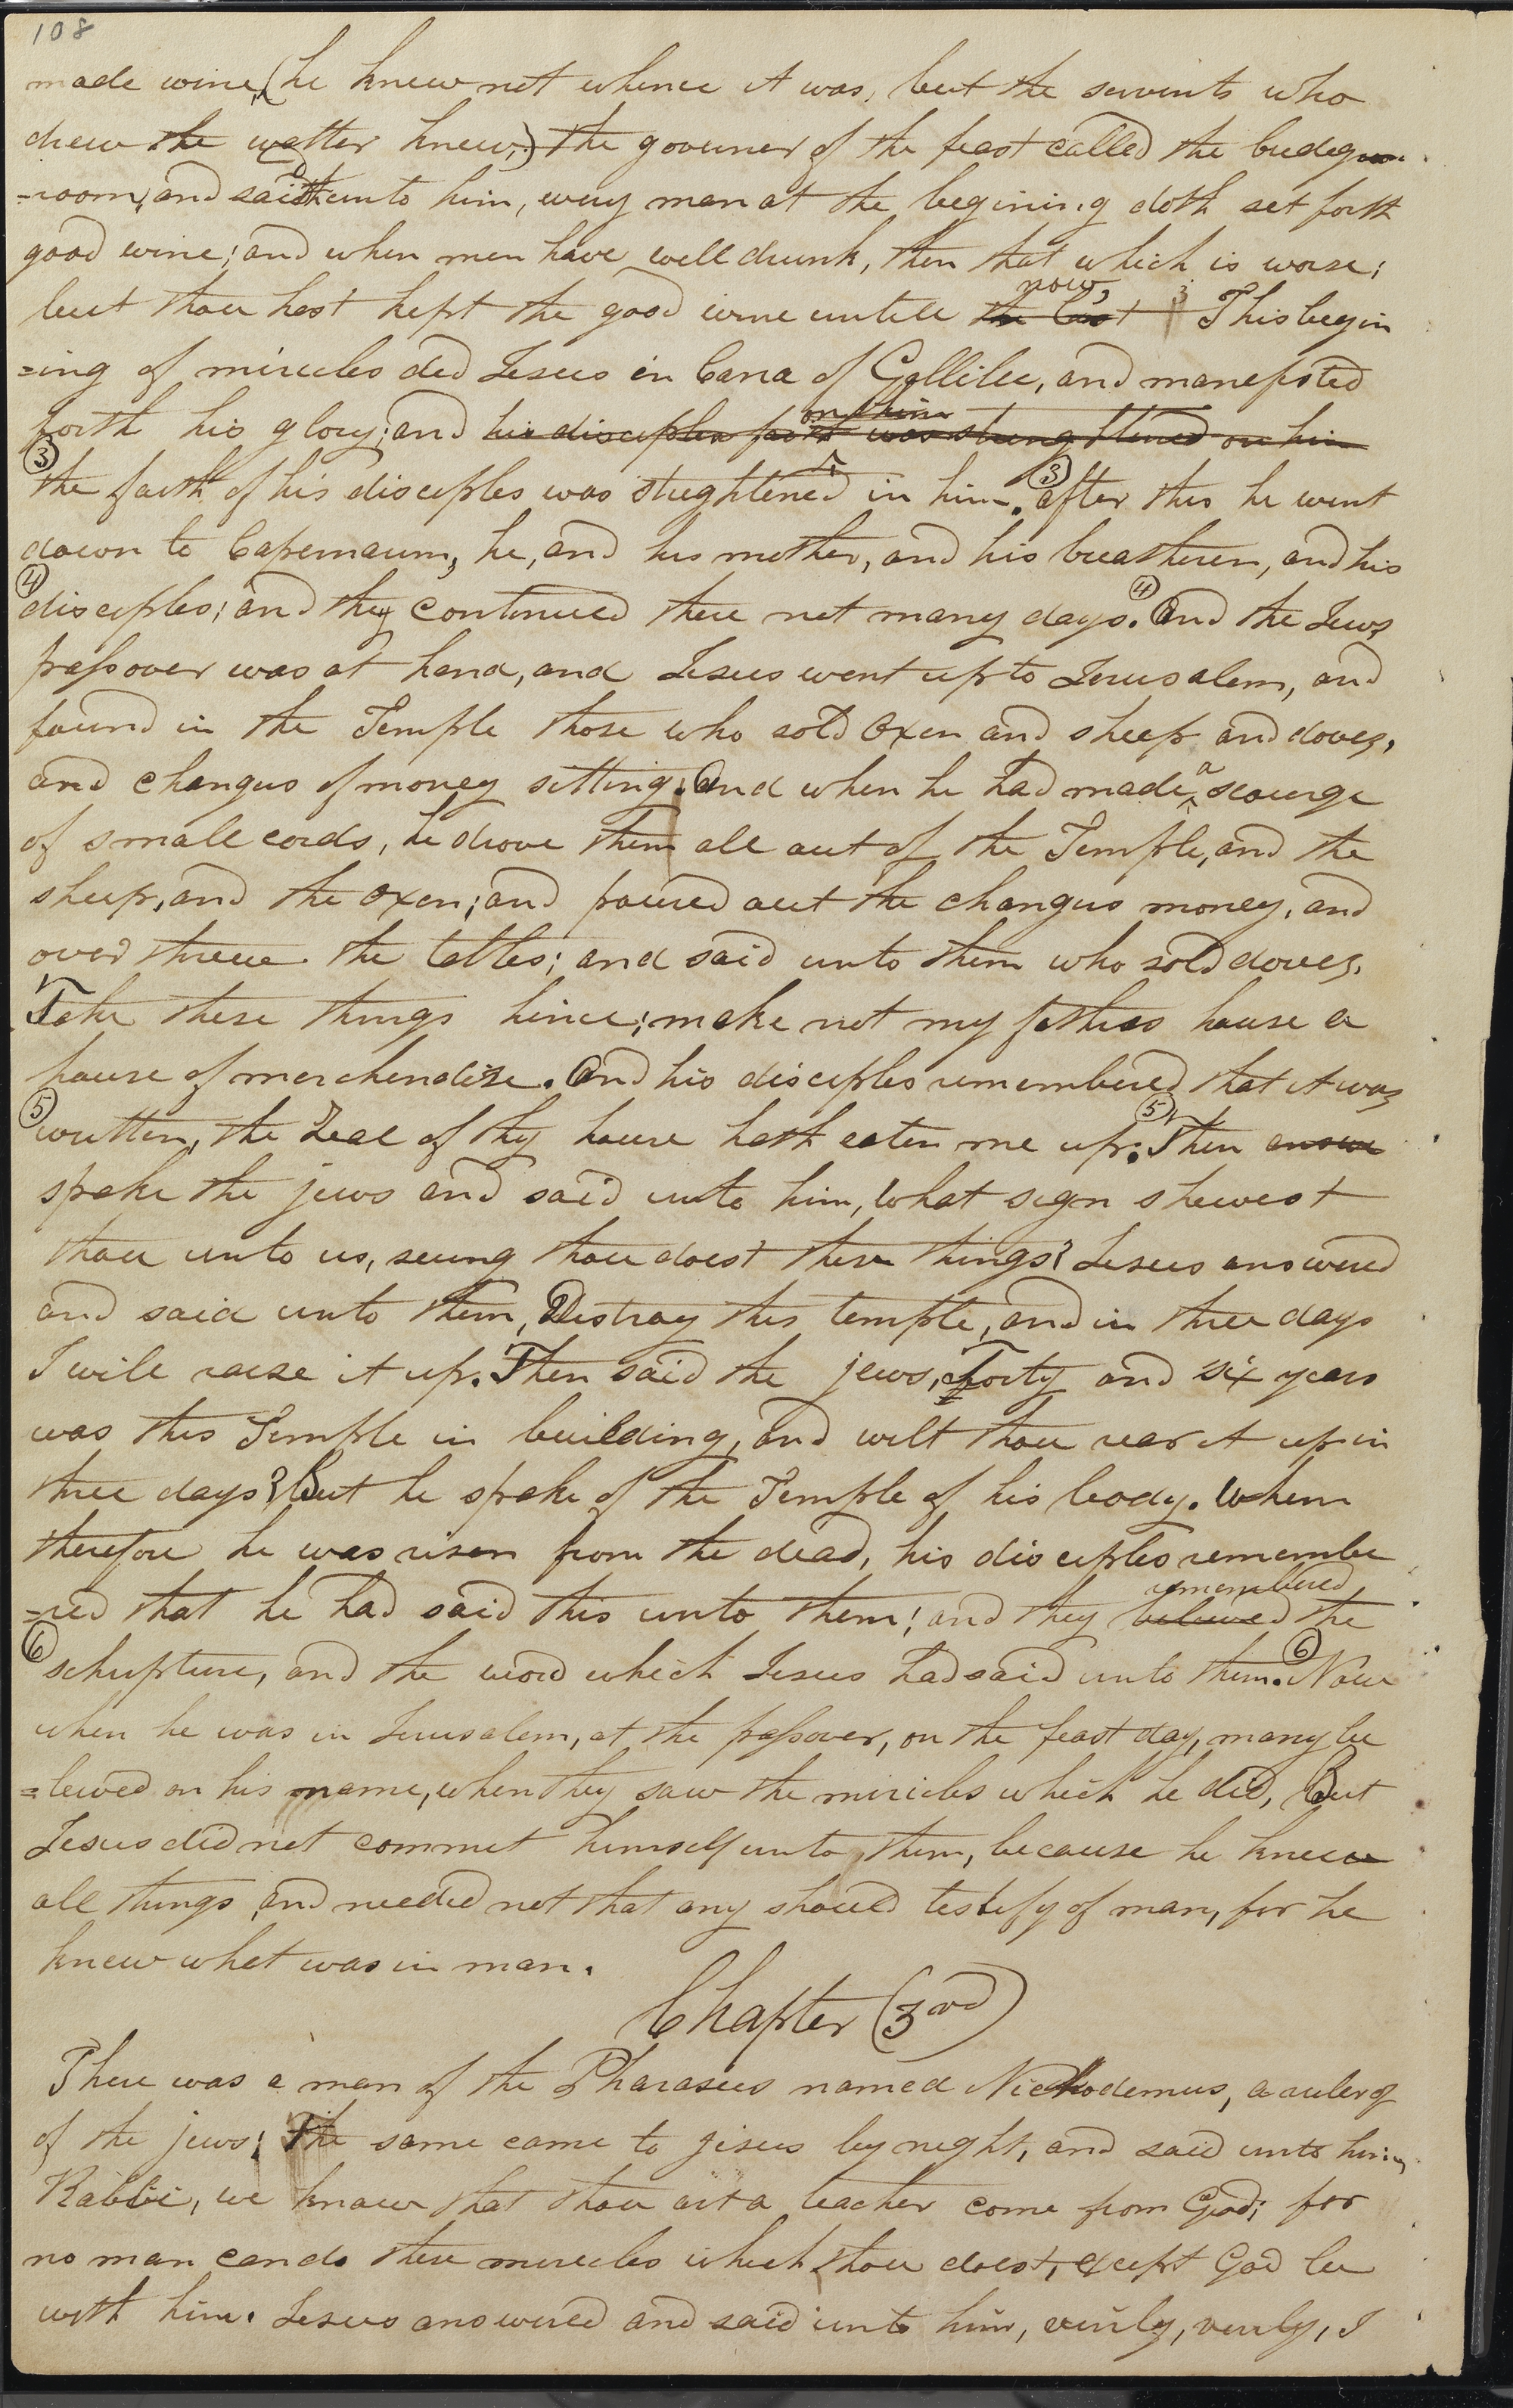 108
made wine, (he knew not whence it was, but the servents who
drew the watter knew,) the governer of the feast called the bridegroo
=room, and said unto him, every man at the begining doth set forth
good wine; and when men have well drunk, then that which is worse;
now,
but thou hast kept the good wine untill the last 3 This begin
=ing of miricles did Jesus in Cana of Gallilee, and manefsted
on him
forth his glory; and his disciples faith was strengthened on him
③ the faith of his disciples was streghtened in him. ③ after this he went
down to Capernaum, he, and his mother, and his breatheren, and his
④ disciples; and they continued there not many days. ④ And the Jews
passover was at hand, and Jesus went up to Jerusalem, and
found in the Temple those who sold Oxen and sheep and doves,
and changers of money sitting. And when he had made ^a scourge
of small cords, he drove them all out of the Temple, and the
sheep, and the oxen; and poured out the changers money, and
over threw the tables; and said unto them who sold doves,
Take these things hence; make not my fathers house a
house of merchendize. And his disciples remembered that it was
⑤ written, the Zeal of thy house hath eaten me up. ⑤ Then answe
spake the jews and said unto him, What sign shewest
thou unto us, seeing thou doest these things? Jesus answered
and said unto them, Destroy this temple, and in three days
I will raise it up. Then said the jews, Forty and six years
was this Temple in building, and wilt thou rear it up in
three days? But he spake of the Temple of his body. When
therefore he was risen from the dead, his disciples remembe
remembered
=red that he had said this unto them; and they believed the
⑥ schripture, and the word which Jesus had said unto them. ⑥ Now
when he was in Jerusalem, at the passover, on the feast day, many be
=leived on his name, when they saw the miricles which he did, But
Jesus did not commit himself unto them, because he knew
all things, and needed not that any should testify of man, for he
knew what was in man.
Chapter (3rd)
There was a man of the Pharasees named Nickodemus, a ruler of
of the jews; The same came to jesus by night, and said unto him,
Rabbi, we know that thou art a teacher come from God; for
no man can do these miricles which thou doest, except God be
with him. Jesus answered and said unto him, verily, verily, I